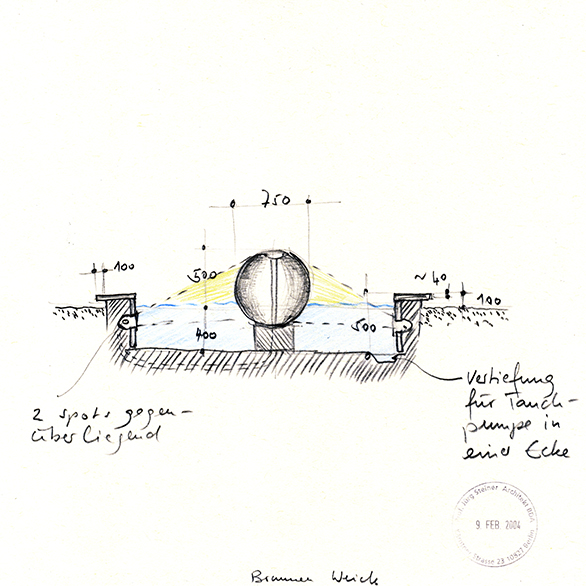 750
100
500
~40
100
400
500
2 spots gegen-
überliegend
Vertiefung
für Tauch-
pumpe in
einer Ecke
Jürg Steiner Architekt BDA
9. FEB. 2004
Strasse 23 10827 Berlin
Brunnen Weick